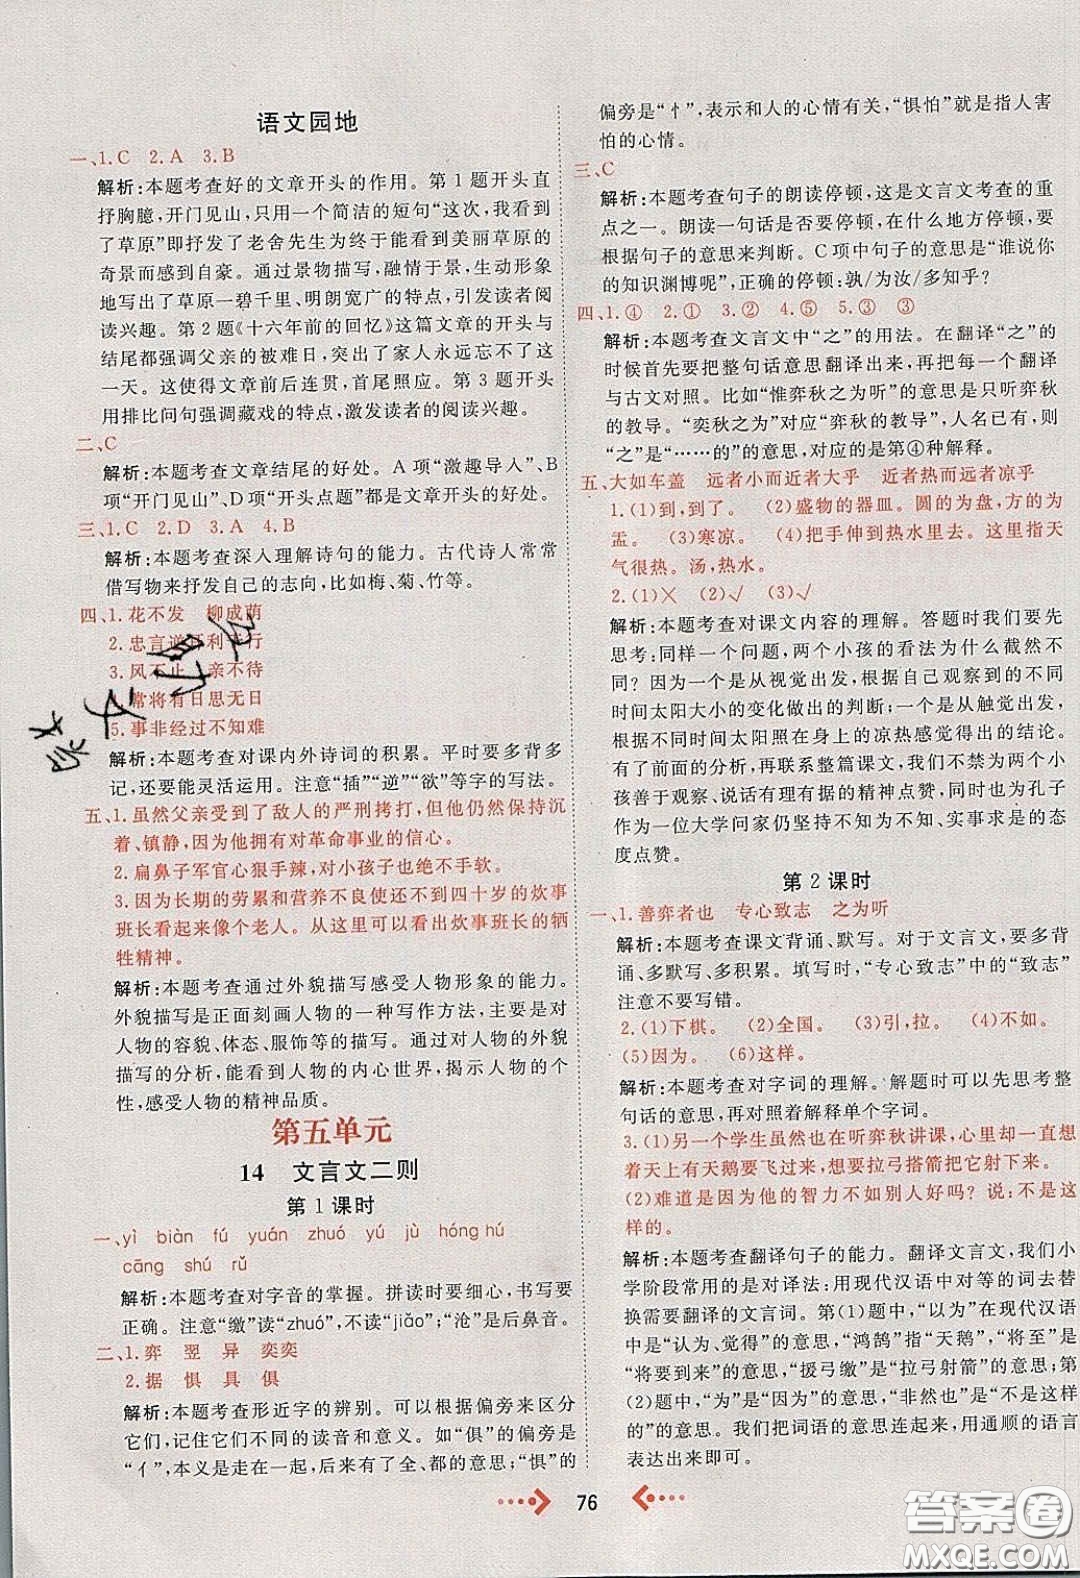 语文园地
一、1.C 2.A 3.B
解析:本题考查好的文章开头的作用。第1题开头直
抒胸臆，开门见山，只用一个简洁的短句“这次，我看到
了草原”即抒发了老舍先生为终于能看到美丽草原的
奇景而感到自豪。通过景物描写，融情于景，生动形象
地写出了草原一碧千里、明朗宽广的特点，引发读者阅
读兴趣。第2题《十六年前的回忆》这篇文章的开头与
结尾都强调父亲的被难日，突出了家人永远忘不了这
一天。这使得文章前后连贯，首尾照应。第3题开头
用排比问句强调藏戏的特点，激发读者的阅读兴趣。
二、C
解析:本题考查文章结尾的好处。A项“激趣导入”、B
项“开门见山”、D项“开头点题”都是文章开头的好处。
三、1.C 2.D 3.A 4.B
解析:本题考查深入理解诗句的能力。古代诗人常常
借写物来抒发自己的志向，比如梅、菊、竹等。
四、1.花不发 柳成荫
2.忠言逆耳利于行
3.风不止 亲不待
4.常将有日思无日
5.事非经过不知难
解析:本题考查对课内外诗词的积累。平时要多背多
记，还要能灵活运用。注意“插”“逆”“欲”等字的写法。
五、1.虽然父亲受到了敌人的严刑拷打，但他仍然保持沉
着、镇静，因为他拥有对革命事业的信心。
2.扁鼻子军官心狠手辣，对小孩子也绝不手软。
3.因为长期的劳累和营养不良使得不到四十岁的炊事
班长看起来像个老人。可以看出炊事班长的牺
牲精神。
解析:本题考查通过外貌描写感受人物形象的能力。
外貌描写是正面刻画人物的一种写作方法，主要对人
物的容貌、体态、服饰等的描写。我们通过对人物的外貌
描写的分析，能看到人物的内心世界，揭示人物的个
性，感受人物的精神品质。
第五单元
14 文言文二则
第1课时
一、yì biàn fú yuán zhuó yú jù hóng hú
cāng shú rǔ
解析:本题考查对字音的掌握。拼读时要细心，书写要
正确。注意“缴”读“zhuó”，不读“jiǎo”；“沧”是后鼻音。
二、1.弈 翌 异 奕奕
2.据 惧 具 俱
解析:本题考查形近字的辨别。可以根据偏旁来区分
它们，记住它们不同的读音和意义。如“俱”的偏旁是
“亻”，本义是走在一起，后来有全、都的意思；“惧”的
偏旁是“忄”，表示和人的心情有关，“惧怕”就是指人害
怕的心情。
三、C
解析:本题考查句子的朗读停顿，这是文言文考查的重
点之一。朗读一句话是否要停顿，在什么地方停顿，要
根据句子的意思来判断。C项中句子的意思是“谁说你
的知识渊博呢”，正确的停顿:孰/为汝/多知乎？
四、1.④ 2.① 3.② 4.⑤ 5.③ 6.③
解析:本题考查文言文中“之”的用法。在翻译“之”的
时候首先要把整句话意思翻译出来，再把每一个翻译
与古文对照。比如“惟弈秋之为听”的意思是只听弈秋
的教导。“奕秋之为”对应“弈秋的教导”，人名已有，则
“之”是“……的”的意思，对应的是第④种解释。
五、大如车盖 远者小而近者大乎 近者热而远者凉乎
1.(1)到，到了。 (2)盛物的器皿。圆的为盘，方的为
盂。 (3)寒凉。 (4)把手伸到热水里去。这里指天
气很热。汤，热水。
2.(1)× (2)√ (3)√
解析:本题考查对课文内容的理解。答题时我们要先
思考:同样一个问题，两个小孩的看法为什么截然不
同？一个是从视觉出发，根据自己观察到的不同时间
太阳大小的变化做出的判断；一个是从触觉出发，根
据不同时间太阳照在身上的凉热感觉得出的结论。
有了前面的分析，再联系整篇课文，我们要为两个小
孩善于观察、说话有理有据的精神点赞，同时也为孔子
作为一位大学问家仍坚持不知为不知、实事求是的态
度点赞。
第2课时
一、1.善弈者也 专心致志 之为听
解析:本题考查课文背诵、默写。对于文言文，要多背
诵、多默写、多积累。填写时，“专心致志”中的“致志”
注意不要写错。
2.(1)下棋。 (2)全国。 (3)引，拉。 (4)不如。
(5)因为。 (6)这样。
解析:本题考查对字词的理解。解题时可以先思考整
句话的意思，再对照着解释单个字词。
3.(1)另一个学生虽然也在听弈秋讲课，心里却一直想
着天上有天鹅要飞过来，想要拉弓搭箭把它射下来。
(2)难道是因为他的智力不如别人好吗？说:不是
这样的。
解析:本题考查翻译句子的能力。翻译文言文，我们小
学阶段常用的是对译法:用现代汉语中对等的词去替
换需要翻译的文言词。第(1)题中，“以为”在现代汉语
中是“认为、觉得”的意思，“鸿鹄”指“天鹅”，“将至”是
“将要到来”的意思，“援弓缴”是“拉弓射箭”的意思；第
(2)题中，“为”是“因为”的意思，“非然也”是“不是这样
的”的意思。我们把词语的意思连起来，用通顺的语言
表达出来即可。
76
答案圈
MXQE.COM